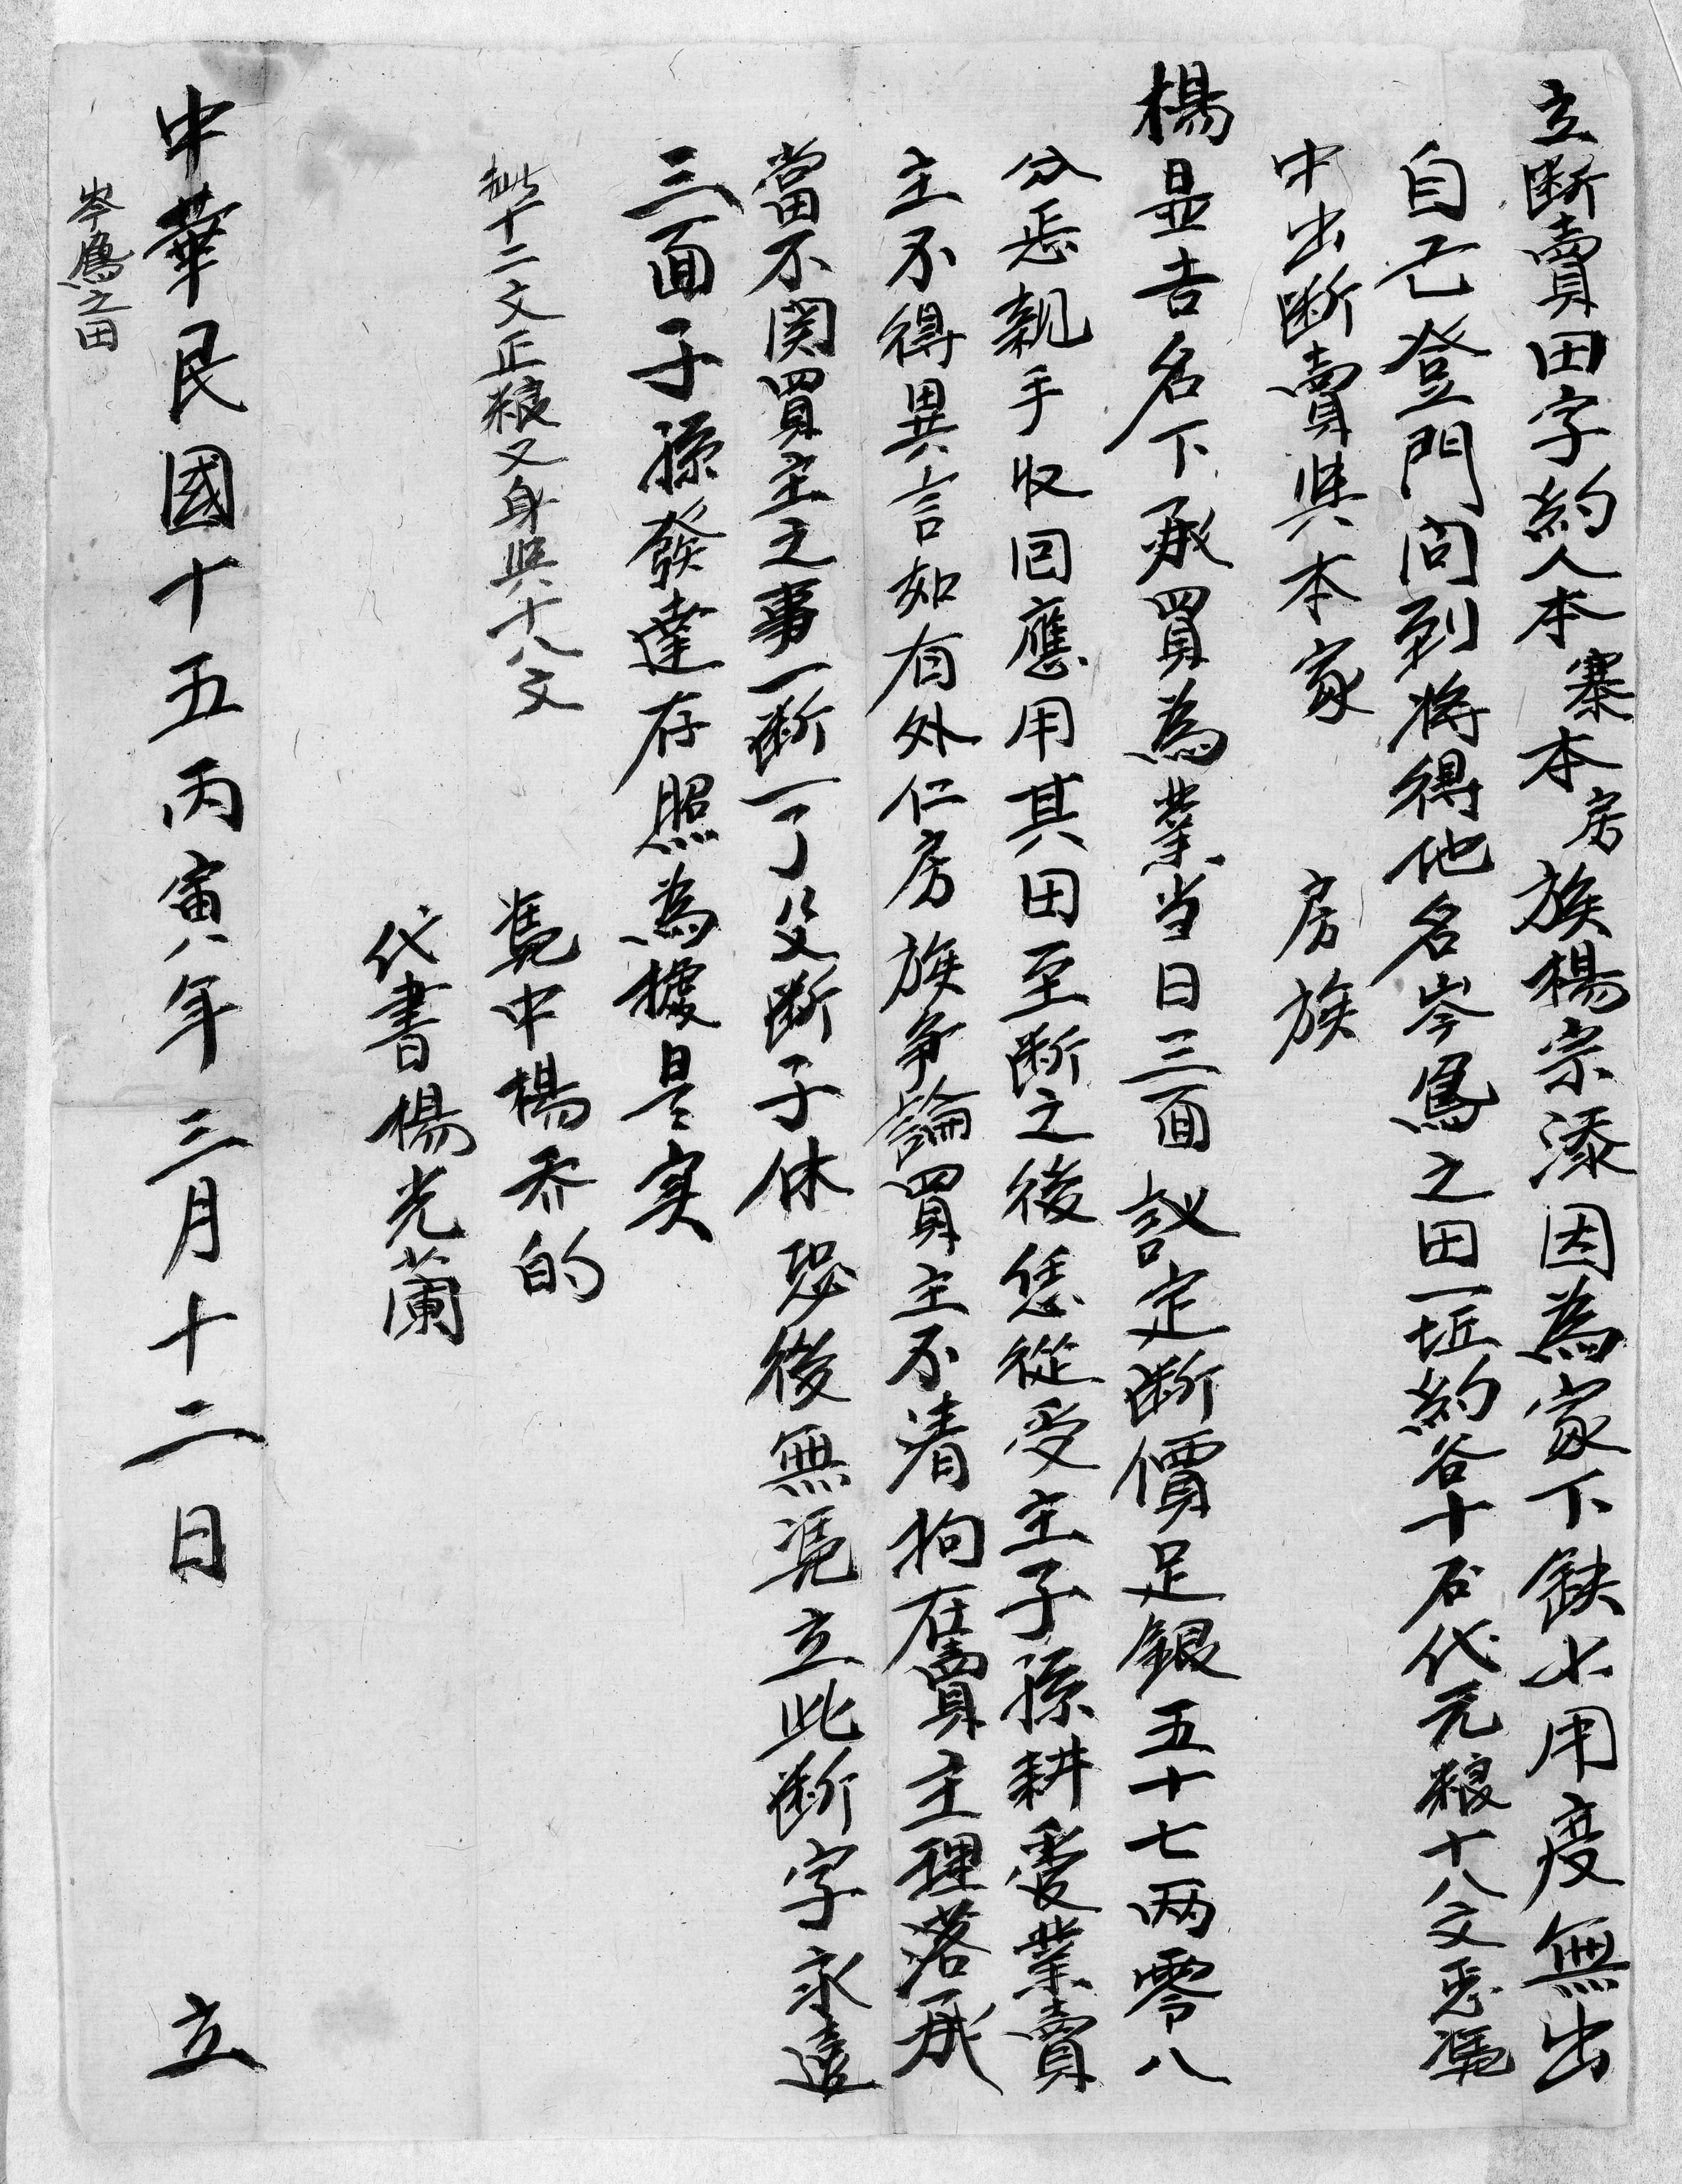 立断賣田字約人本寨本房族楊宗漆因為家下缺少用度無出
自己登門问到将得他名岑鳳之田一坵約谷十石代元粮十八文悉凴
中出断賣與本家 房族
楊显吉名下承買為業当日三面議定断價足銀五十七两零八
分悉親手收回應用其田至断之後恁從受主子孫耕受業賣
主不得異言如有外仁房族争論買主不清拘在賣主理落承
當不関買主之事一断一了父断子休恐後無凴立此断字永遠
三面子孫發達存照為據是实
批十二文正粮又身與十八文
凴中楊乔的
代書楊光蘭
中華民國十五丙寅年三月十二日 立
岑鳳之田